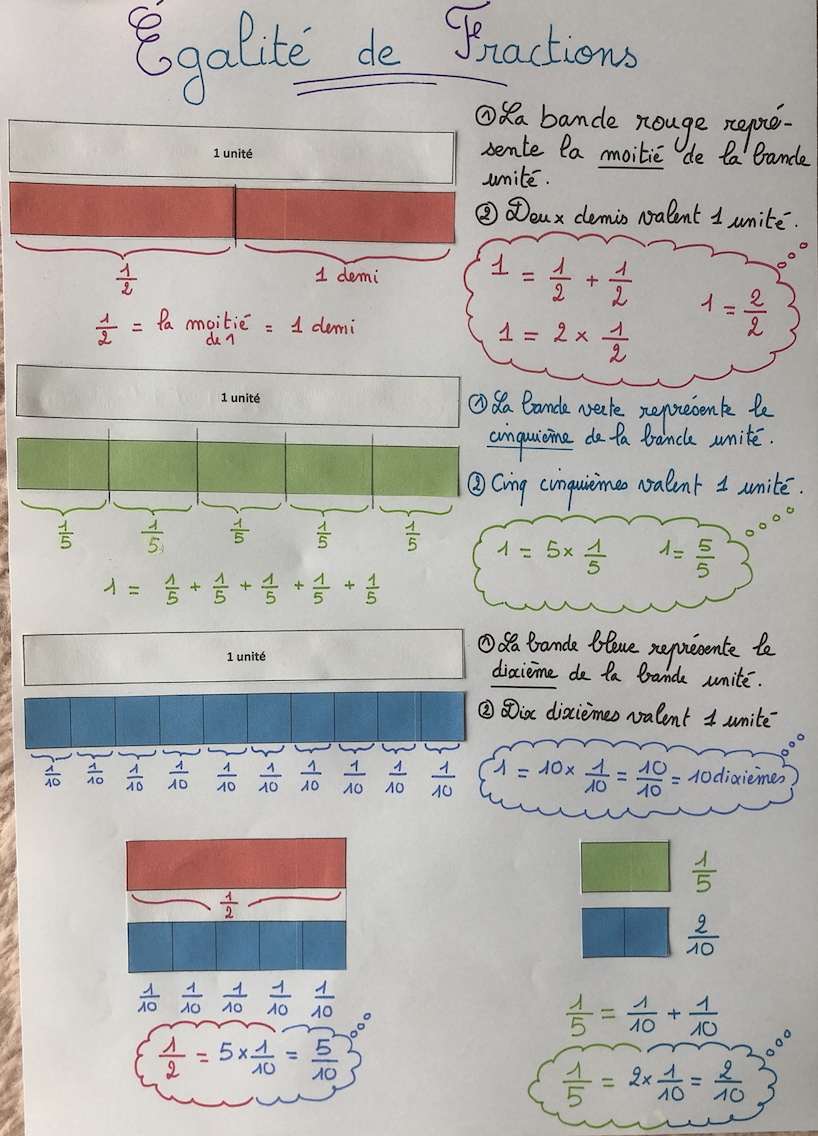 Égalité de Fractions
1 unité
1/2
1 demi
1/2 = la moitié de 1 = 1 demi
① La bande rouge repré-
sente la moitié de la bande
unité.
② Deux demis valent 1 unité.
1 = 1/2 + 1/2
1 = 2 × 1/2
1 = 2/2
1 unité
1/5 1/5 1/5 1/5 1/5
1 = 1/5 + 1/5 + 1/5 + 1/5 + 1/5
① La bande verte représente le
cinquième de la bande unité.
② Cinq cinquièmes valent 1 unité.
1 = 5 × 1/5 1 = 5/5
1 unité
1/10 1/10 1/10 1/10 1/10 1/10 1/10 1/10 1/10 1/10
① La bande bleue représente le
dixième de la bande unité.
② Dix dixièmes valent 1 unité
1 = 10 × 1/10 = 10/10 = 10 dixièmes
1/2
1/10 1/10 1/10 1/10 1/10
1/2 = 5 × 1/10 = 5/10
1/5
2/10
1/5 = 1/10 + 1/10
1/5 = 2 × 1/10 = 2/10